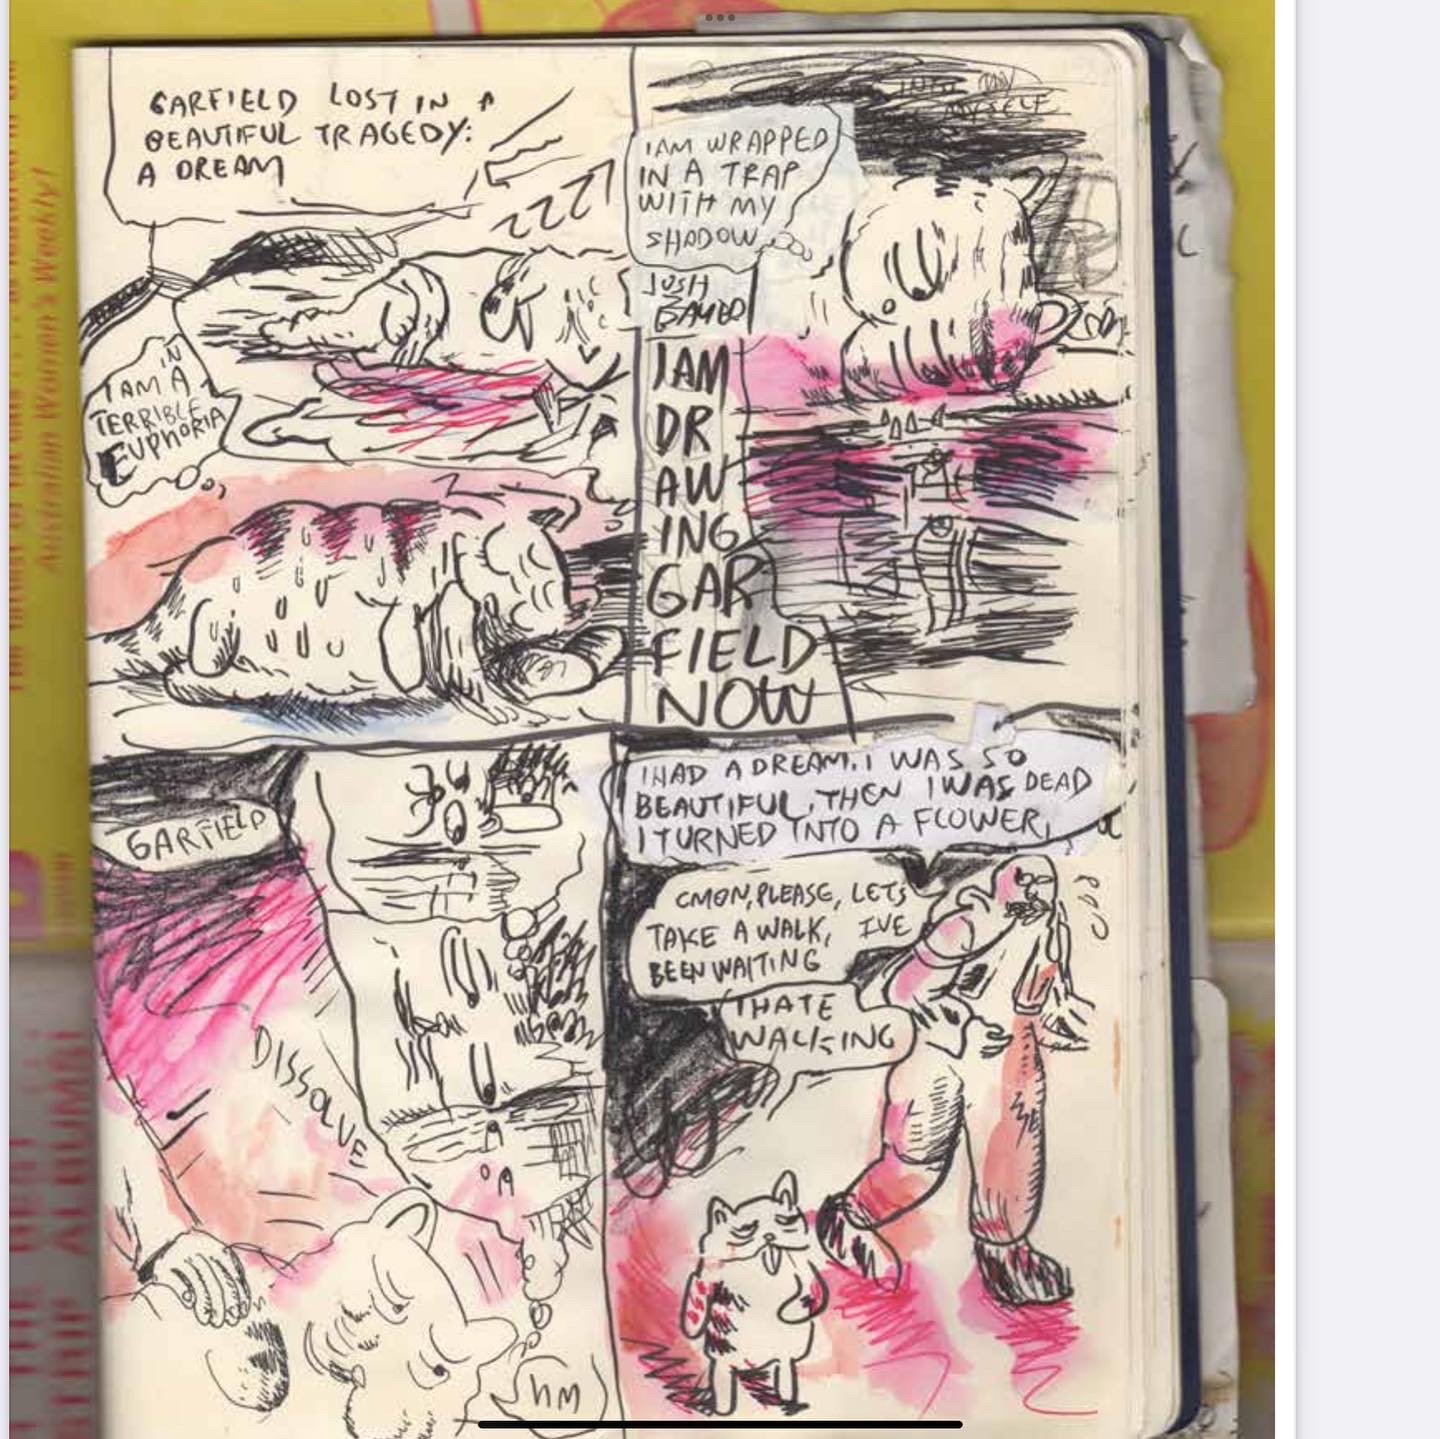 GARFIELD LOST IN A
BEAUTIFUL TRAGEDY:
A DREAM
ZZZZ
I AM IN A
TERRIBLE
EUPHORIA
INTO MY
MYSELF
I AM WRAPPED
IN A TRAP
WITH MY
SHADOW
JOSH
I AM
DR
AW
ING
GAR
FIELD
NOW
GARFIELD
DISSOLVE
HM
I HAD A DREAM. I WAS SO
BEAUTIFUL, THEN I WAS DEAD
I TURNED INTO A FLOWER,
CMON, PLEASE, LETS
TAKE A WALK, IVE
BEEN WAITING
I HATE
WALKING
Australian Women's Weekly!